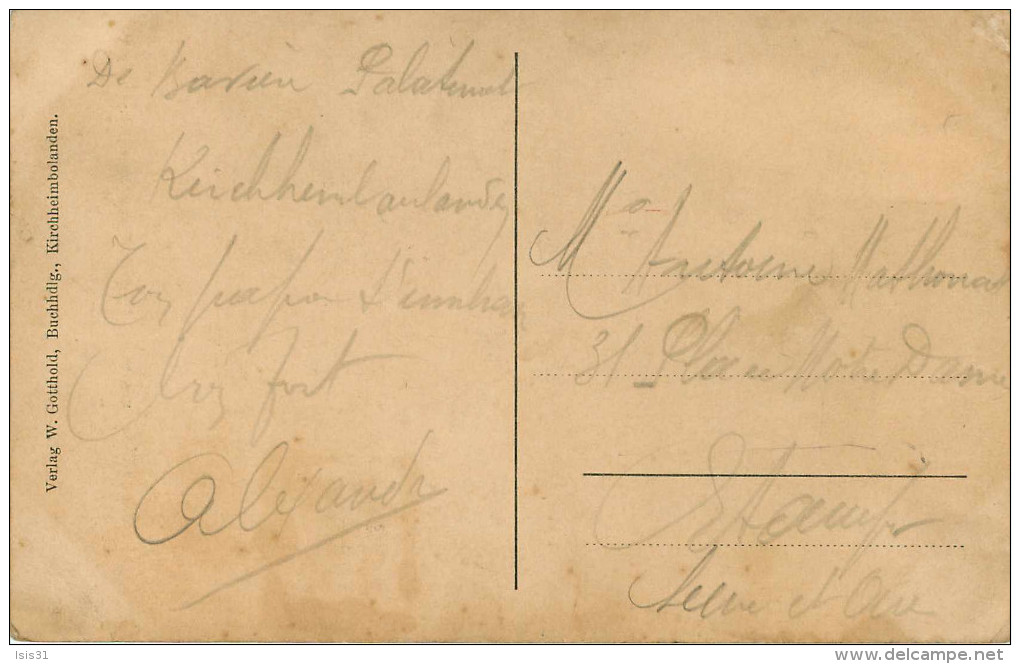 Verlag W. Gotthold, Buchhdlg., Kirchheimbolanden.
De Bavière Palatinat
Kirchheimbaulande
Ton papa t'embra
fort
Alexandre
Mr Antoine
31 Place Notre Dame
Etampes
Seine et Oise
Isis31
delcampe.net